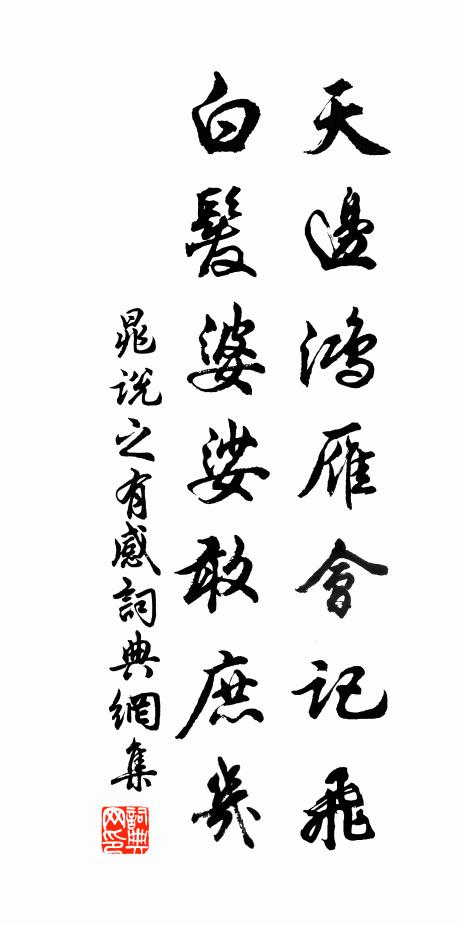 天邊鴻雁會記飛
白髮婆娑敢庶幾
晁說之有感詞典網集
詞典
网印